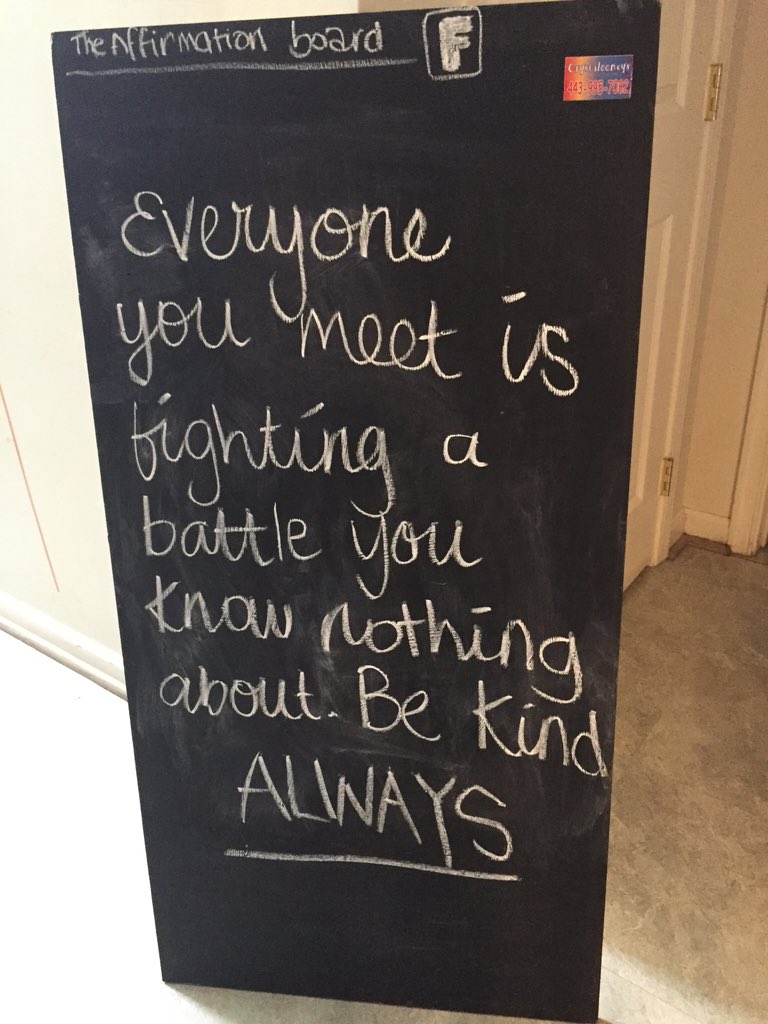 The Affirmation board F
443-996-7082
Everyone
you meet is
fighting a
battle you
know nothing
about. Be kind
ALWAYS